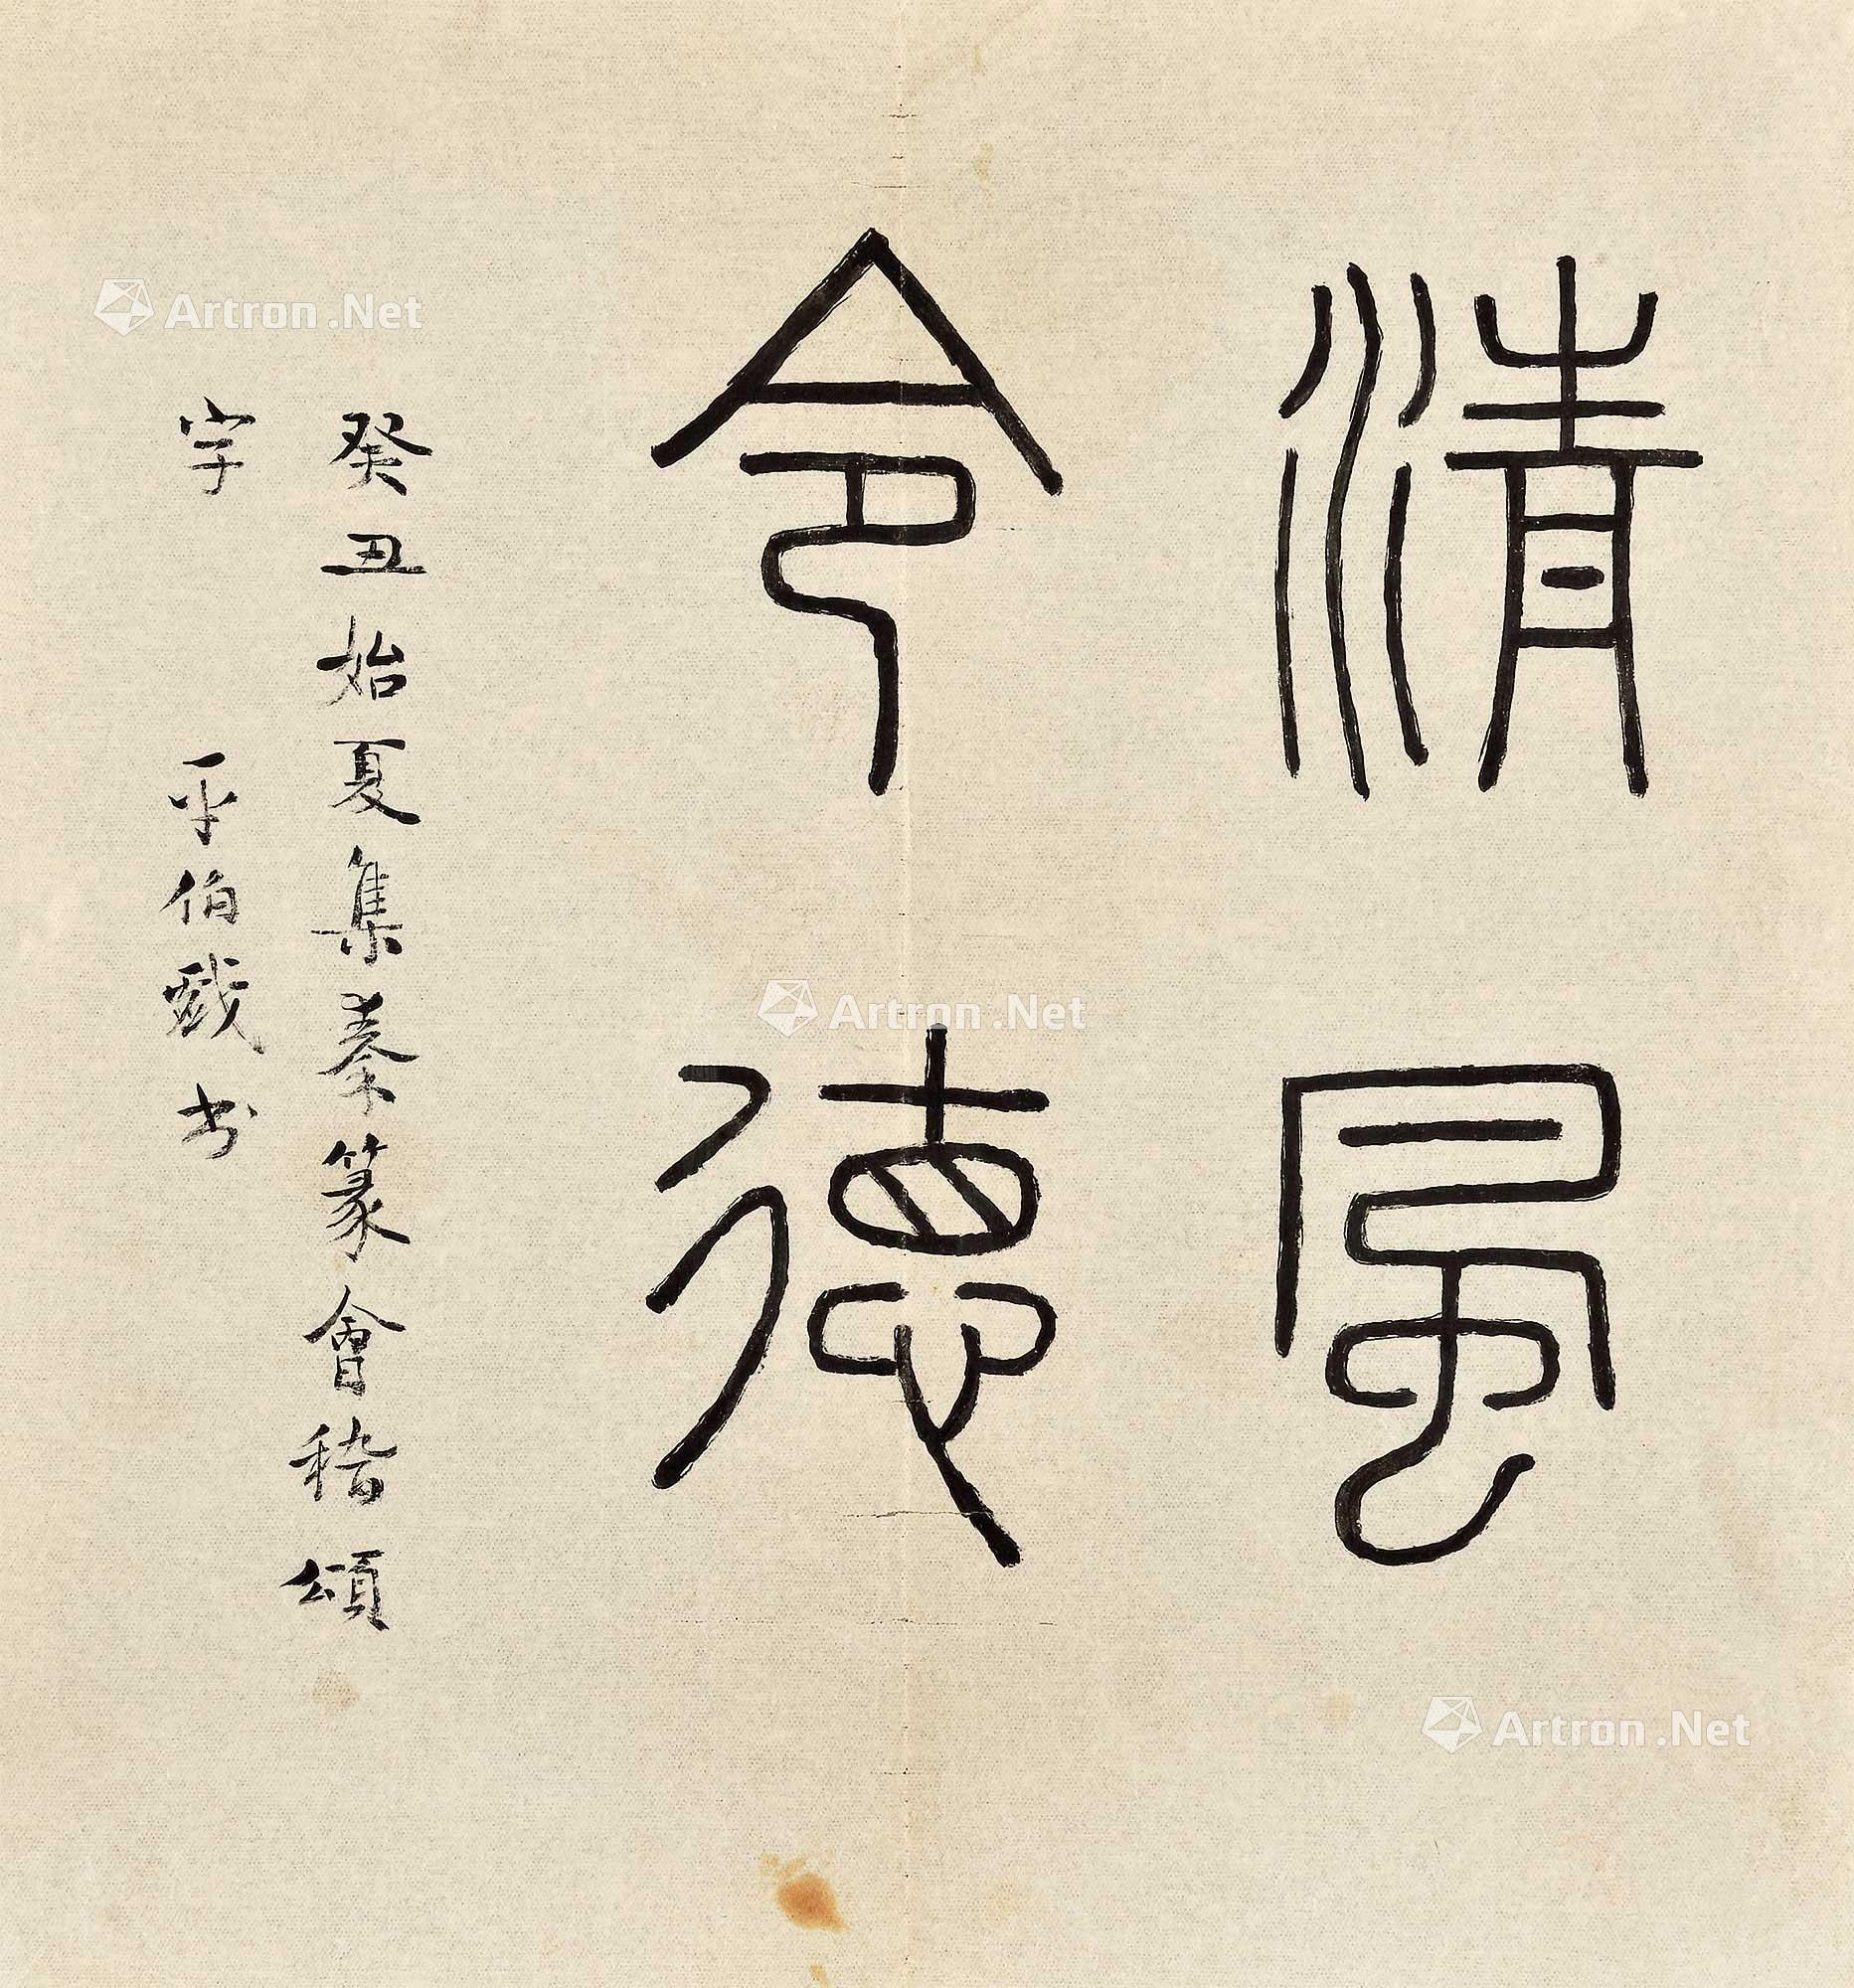 清風
令德
癸丑始夏集秦篆會稽頌
字 平伯戲书
Artron.Net
Artron.Net
Artron.Net